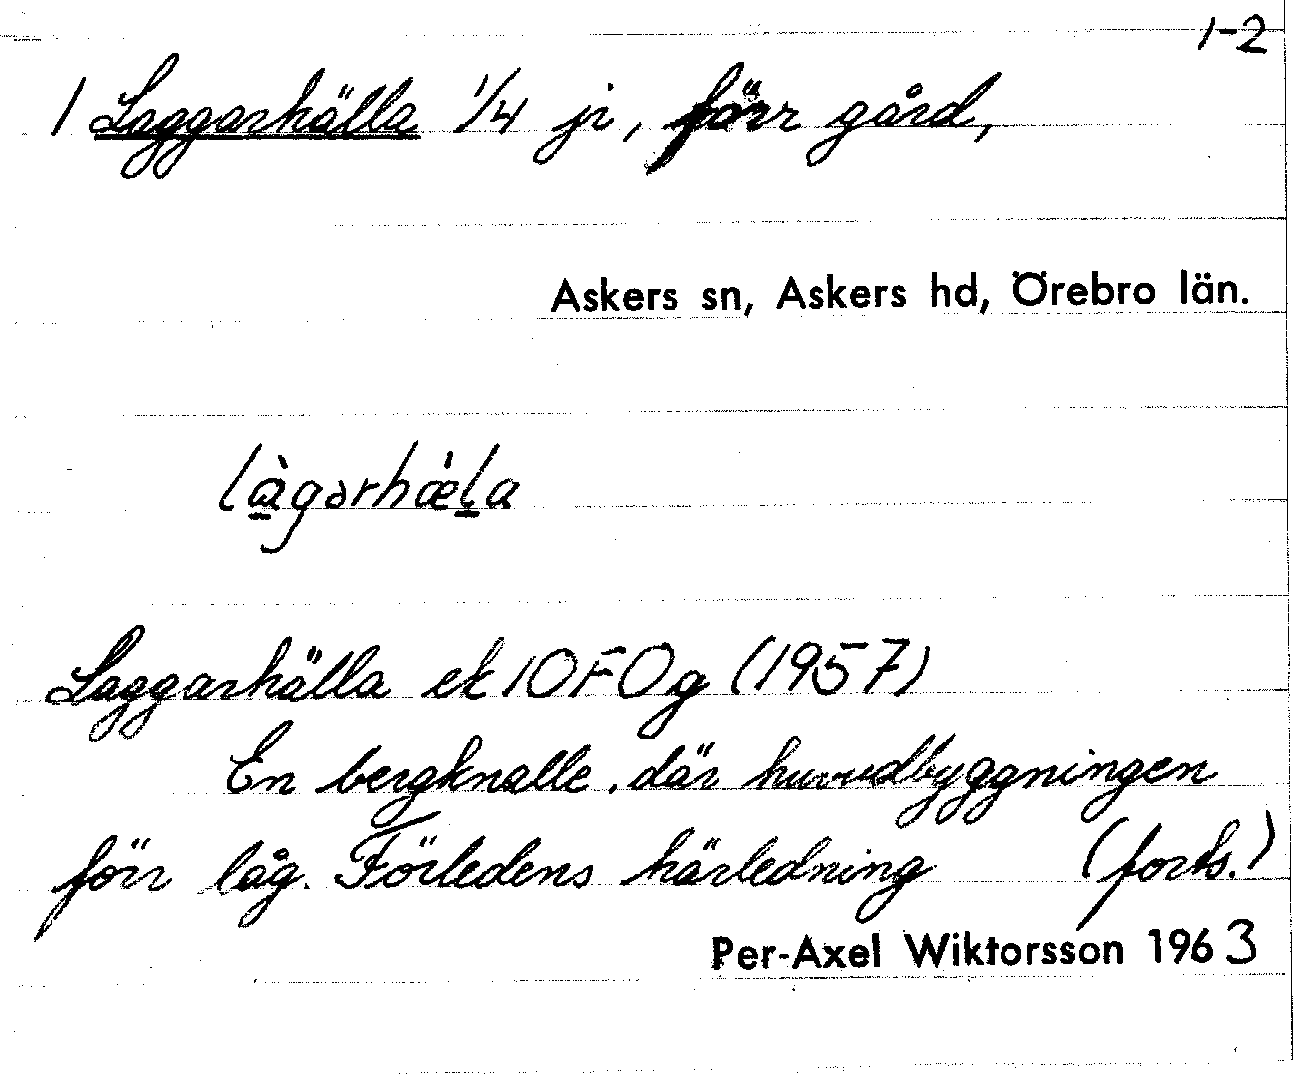 1-2
1 Laggarhälla 1/4 ji, förr gård,
Askers sn, Askers hd, Örebro län.
là̱gərhæ̀ḻa
Laggarhälla ek 10F0g (1957)
En bergknalle, där huvudbyggningen
förr låg. Förledens härledning (forts.)
Per-Axel Wiktorsson 1963